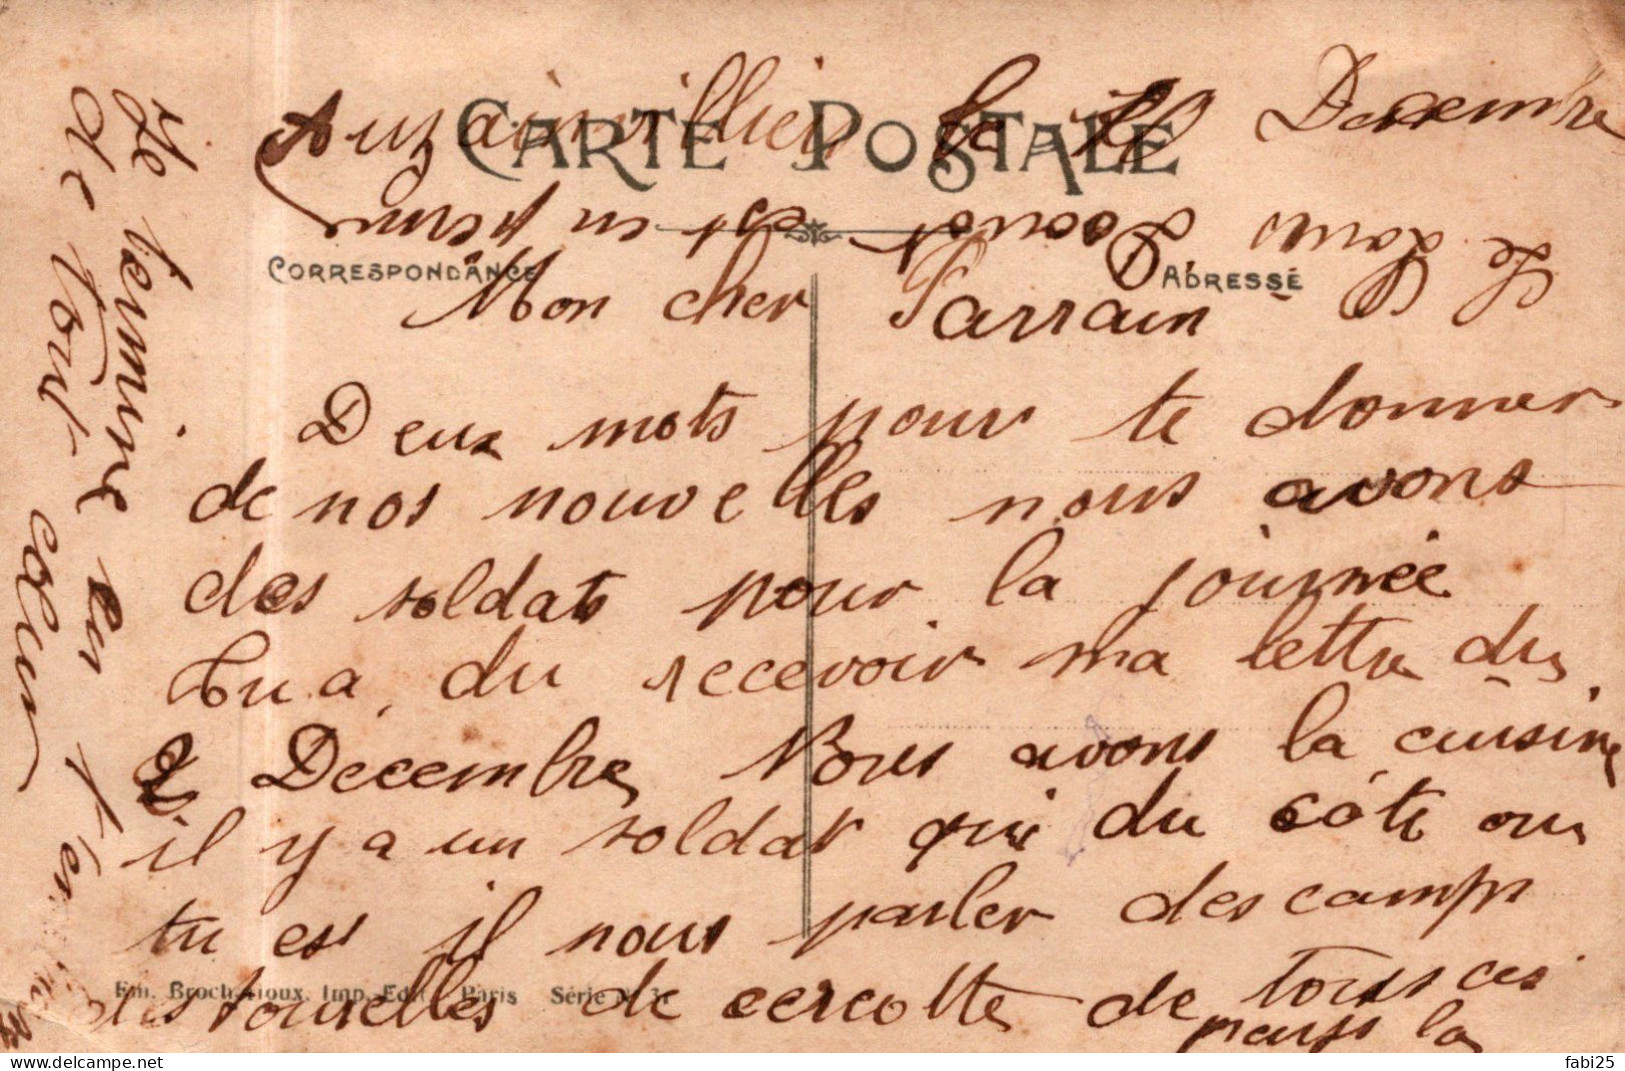 Auzainvilliers le Decembre
CARTE POSTALE
CORRESPONDANCE
ADRESSE
Mon cher Parrain
Deux mots pour te donner
de nos nouvelles nous avons
des soldats pour la journée
tu a du recevoir ma lettre du
2 Décembre Nous avons la cuisine
il y a un soldat qui du côté ou
tu es il nous parler des camps
des tourelles de cercotte de tous ces
pays la
Em. Paris Série N
Je termine en
de tout cœur
est en
fabi25